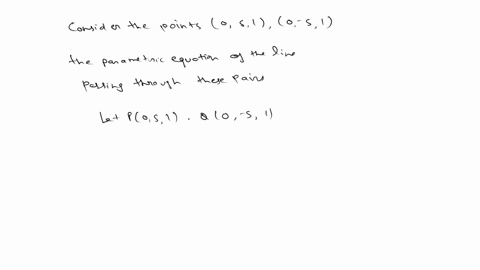 Consider the points (0, 5, 1), (0, -5, 1)
the parametric equation of the line
passing through these pairs
Let P(0, 5, 1) . Q (0, -5, 1)